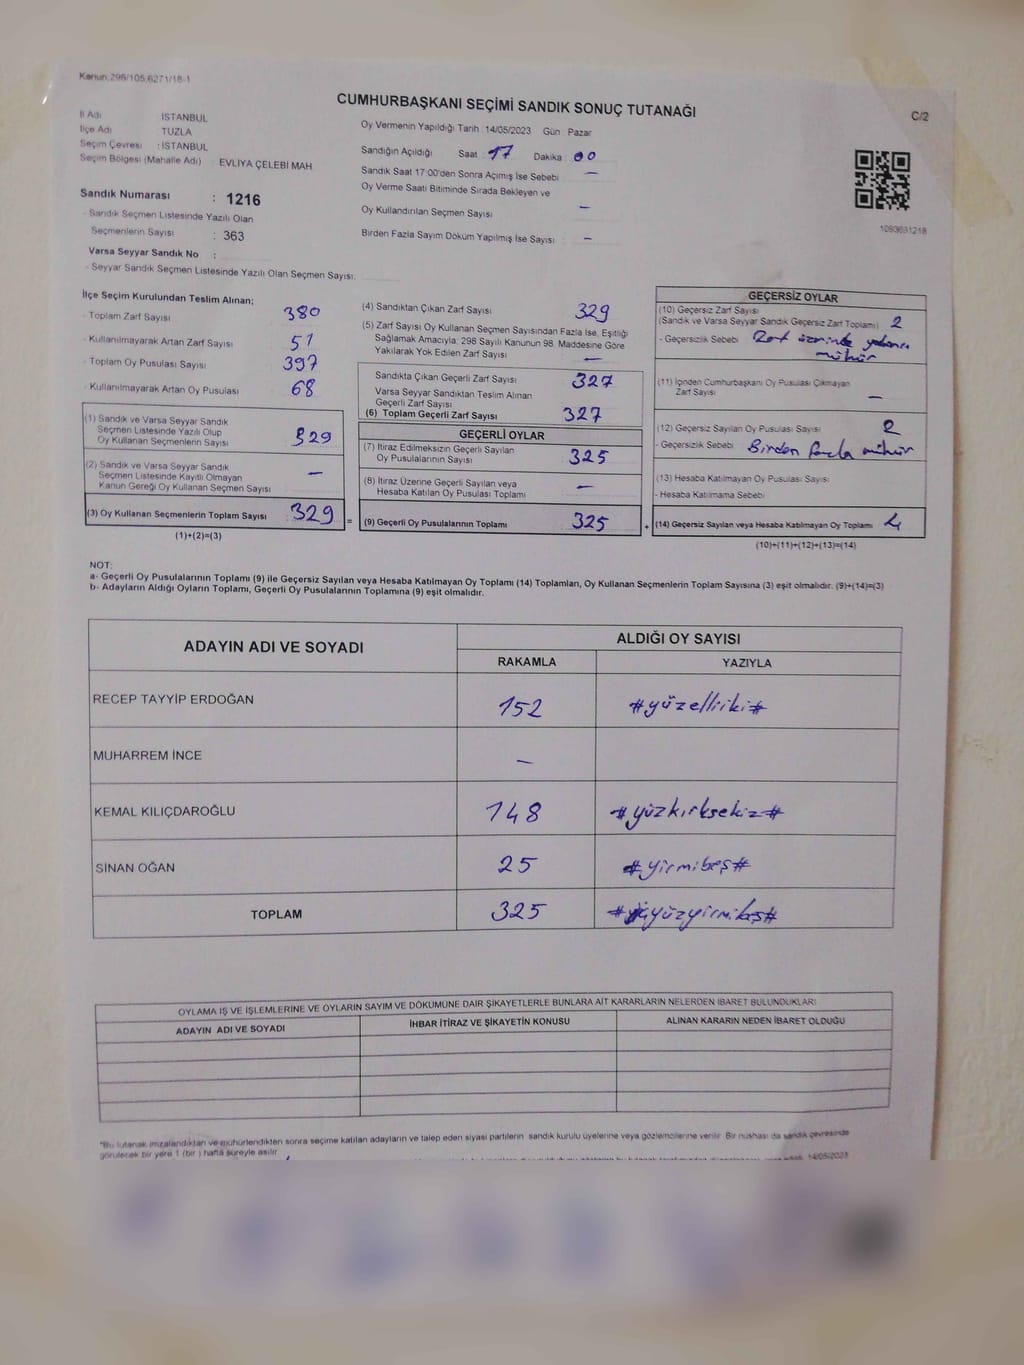 Kanun.298/105,6271/18-1
CUMHURBAŞKANI SEÇİMİ SANDIK SONUÇ TUTANAĞI
C/2
İl Adı İSTANBUL
İlçe Adı TUZLA
Seçim Çevresi : İSTANBUL
Seçim Bölgesi (Mahalle Adı) : EVLİYA ÇELEBİ MAH
Sandık Numarası : 1216
- Sandık Seçmen Listesinde Yazılı Olan
Seçmenlerin Sayısı : 363
Varsa Seyyar Sandık No :
- Seyyar Sandık Seçmen Listesinde Yazılı Olan Seçmen Sayısı:
Oy Vermenin Yapıldığı Tarih 14/05/2023 Gün Pazar
Sandığın Açıldığı Saat 17 Dakika 00
Sandık Saat 17:00'den Sonra Açımış İse Sebebi —
Oy Verme Saati Bitiminde Sırada Bekleyen ve
Oy Kullandırılan Seçmen Sayısı —
Birden Fazla Sayım Döküm Yapılmış İse Sayısı —
1093631218
İlçe Seçim Kurulundan Teslim Alınan;
- Toplam Zarf Sayısı 380
- Kullanılmayarak Artan Zarf Sayısı 51
- Toplam Oy Pusulası Sayısı 397
- Kullanılmayarak Artan Oy Pusulası 68
(1) Sandık ve Varsa Seyyar Sandık
Seçmen Listesinde Yazılı Olup
Oy Kullanan Seçmenlerin Sayısı 329
(2) Sandık ve Varsa Seyyar Sandık
Seçmen Listesinde Kayıtlı Olmayan
Kanun Gereği Oy Kullanan Seçmen Sayısı —
(3) Oy Kullanan Seçmenlerin Toplam Sayısı 329 =
(1)+(2)=(3)
(4) Sandıktan Çıkan Zarf Sayısı 329
(5) Zarf Sayısı Oy Kullanan Seçmen Sayısından Fazla İse, Eşitliği
Sağlamak Amacıyla; 298 Sayılı Kanunun 98. Maddesine Göre
Yakılarak Yok Edilen Zarf Sayısı —
Sandıkta Çıkan Geçerli Zarf Sayısı 327
Varsa Seyyar Sandıktan Teslim Alınan
Geçerli Zarf Sayısı
(6) Toplam Geçerli Zarf Sayısı 327
GEÇERLİ OYLAR
(7) İtiraz Edilmeksizin Geçerli Sayılan
Oy Pusulalarının Sayısı 325
(8) İtiraz Üzerine Geçerli Sayılan veya
Hesaba Katılan Oy Pusulası Toplamı —
(9) Geçerli Oy Pusulalarının Toplamı 325 +
GEÇERSİZ OYLAR
(10) Geçersiz Zarf Sayısı
(Sandık ve Varsa Seyyar Sandık Geçersiz Zarf Toplamı) 2
- Geçersizlik Sebebi Zarf üzerinde yabancı
mühür
(11) İçinden Cumhurbaşkanı Oy Pusulası Çıkmayan
Zarf Sayısı —
(12) Geçersiz Sayılan Oy Pusulası Sayısı 2
- Geçersizlik Sebebi Birden fazla mühür
(13) Hesaba Katılmayan Oy Pusulası Sayısı
- Hesaba Katılmama Sebebi
(14) Geçersiz Sayılan veya Hesaba Katılmayan Oy Toplamı 4
(10)+(11)+(12)+(13)=(14)
NOT:
a- Geçerli Oy Pusulalarının Toplamı (9) ile Geçersiz Sayılan veya Hesaba Katılmayan Oy Toplamı (14) Toplamları, Oy Kullanan Seçmenlerin Toplam Sayısına (3) eşit olmalıdır. (9)+(14)=(3)
b- Adayların Aldığı Oyların Toplamı, Geçerli Oy Pusulalarının Toplamına (9) eşit olmalıdır.
ADAYIN ADI VE SOYADI ALDIĞI OY SAYISI
RAKAMLA YAZIYLA
RECEP TAYYİP ERDOĞAN 152 #yüzelliiki#
MUHARREM İNCE —
KEMAL KILIÇDAROĞLU 148 #yüzkırksekiz#
SİNAN OĞAN 25 #yirmibeş#
TOPLAM 325 #üçyüzyirmibeş#
OYLAMA İŞ VE İŞLEMLERİNE VE OYLARIN SAYIM VE DÖKÜMÜNE DAİR ŞİKAYETLERLE BUNLARA AİT KARARLARIN NELERDEN İBARET BULUNDUKLARI
ADAYIN ADI VE SOYADI İHBAR İTİRAZ VE ŞİKAYETİN KONUSU ALINAN KARARIN NEDEN İBARET OLDUĞU
*Bu tutanak imzalandıktan ve mühürlendikten sonra seçime katılan adayların ve talep eden siyasi partilerin sandık kurulu üyelerine veya gözlemcilerine verilir. Bir nüshası da sandık çevresinde
görülecek bir yere 1 (bir) hafta süreyle asılır.
14/05/2023